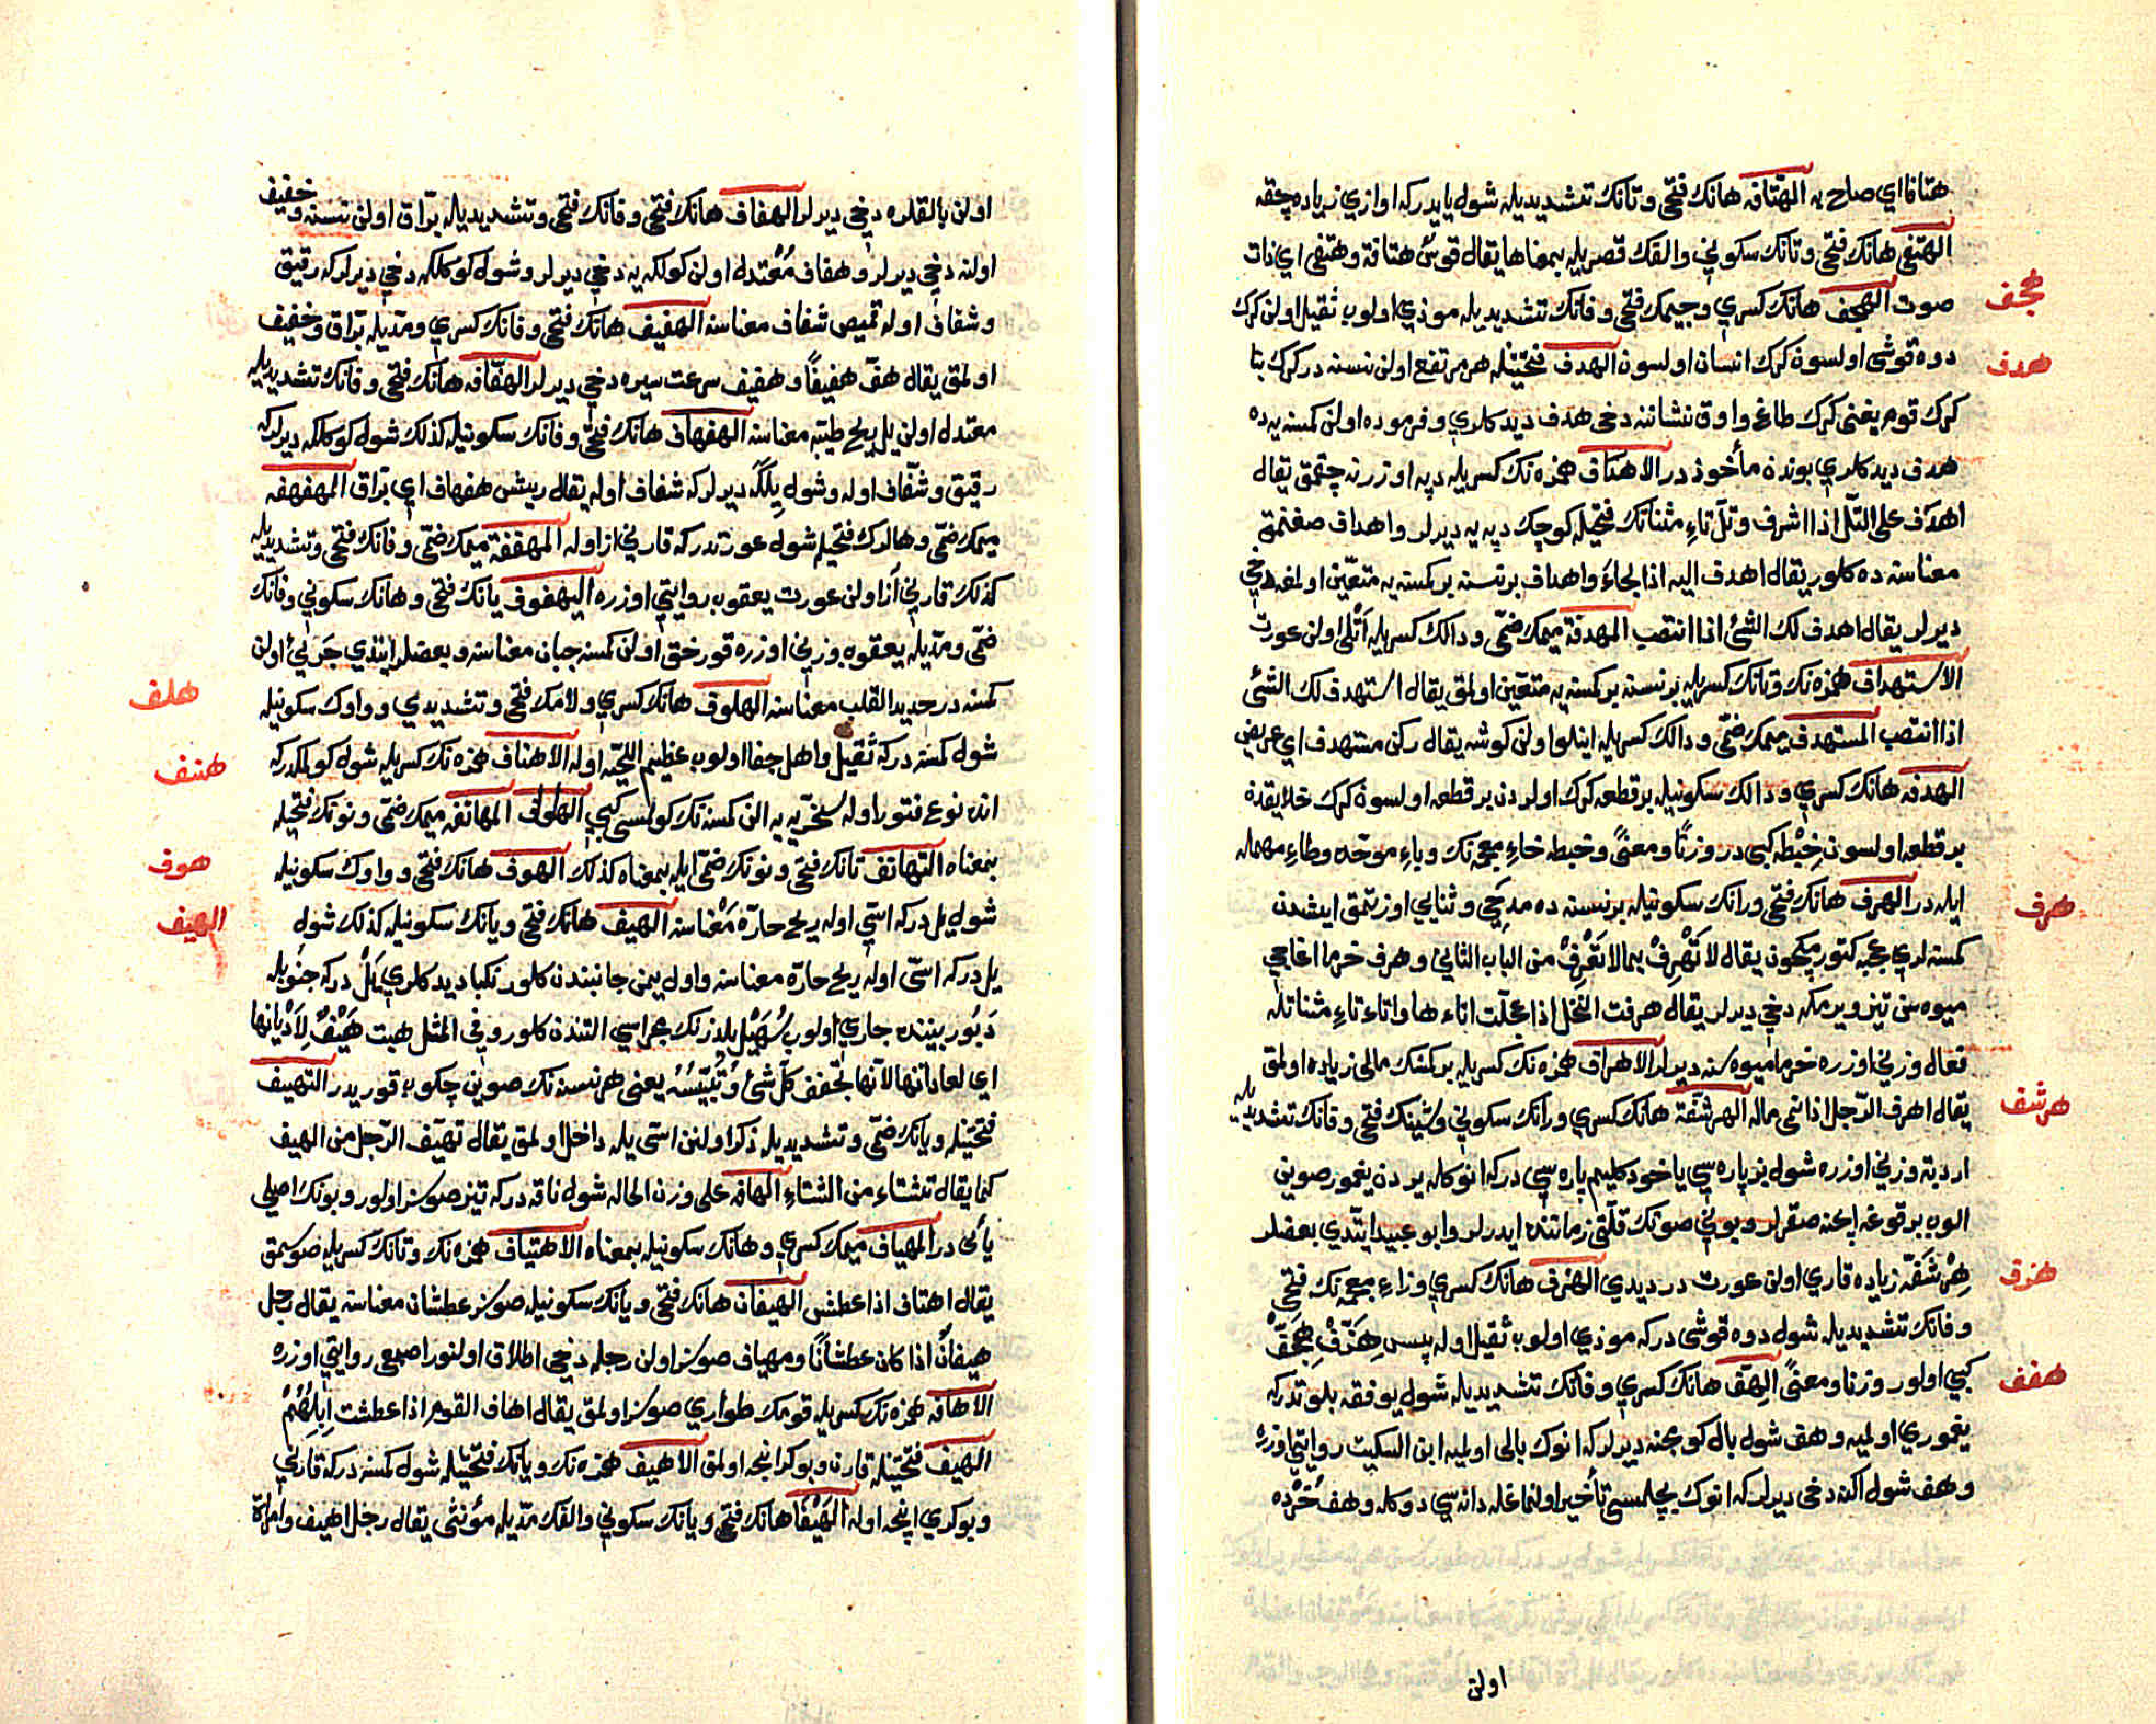 هتافا اي صاح به الهتافه هانك فتحى و تانك تشديديله شول يايدركه اوازي زياده چقه
الهتفى هانك فتحى و تانك سكوني والفك قصريله بمعناها يقال قوس هتافة وهتفى اي ذات
هجف
صوت الهجف هانك كسري وجيمك فتحى و فانك تشديديله موذي اولوب ثقيل اولن كرك
هدف
دوه قوشى اولسون كرك انسان اولسون الهدف فتحتيله هر مرتفع اولن نسنه در كرك بنا
كرك قوم يغنى كرك طاغ و اوق نشاننه دخى هدف ديدكلري و فرموده اولن كمسنه يه ده
هدف ديدكلري بوندن مأخوذ در الاهداف همزه نك كسريله دپه اوزرنه چقمق يقال
اهدف على التل اذا اشرف و تل تاء مثناتك فتحيله كوچك دپه يه ديرلر واهداف صغنمق
معناسنه ده كلور يقال اهدف اليه اذا لجاء واهداف بر نسنه بر كمسنه يه متعين اولمغه دخي
ديرلر يقال اهدف لك الشئ اذا انتصب المهدفة ميمك ضمى و دالك كسريله اتلى اولن عورت
الاستهداف همزه نك و تانك كسريله بر نسنه بر كمسنه يه متعين اولمق يقال استهدف لك الشئ
اذا انتصب المستهدف ميمك ضمى و دالك كسريله اينلو اولن كوشه يقال ركن مستهدف اي عريض
الهدفه هانك كسري و دالك سكونيله بر قطعه كرك اولردن بر قطعه اولسون كرك خلايقدن
بر قطعه اولسون خبطه كبى در وزنا ومعنى وخبطه خاء معجمه نك وباء موحده وطاء مهمله
هرف
ايله در الهرف هانك فتحى و رانك سكونيله بر نسنه ده مدحي و ثنايي اوزتمق ايشدن
كمسنه لري عجبه كتورمكچون يقال لا تهرف بما لا تعرف من الباب الثاني وهرف خرما اغاجي
ميوه سن تيز ويرمكه دخي ديرلر يقال هرفت النخل اذا عجلت اتاءها واتاء تاء مثناتله
فعال وزني اوزره خرما ميوه سنه ديرلر الاهراف همزه نك كسريله بر كمسنك مالى زياده اولمق
هرشف
يقال اهرف الرجل اذا نمى ماله الهرشفة هانك كسري و رانك سكوني و شينك فتحى و فانك تشديديله
اردبة وزني اوزره شول بز پاره سي يا خود كليم پاره سي دركه انوكله يردن يغمور صوين
الوب بر قوغه ايچنه صقرلر و بوني صونك قلتى زماننده ايدرلر و ابو عبيد ايتدي بعضلر
هزف
هرشفه زياده قاري اولن عورت در ديدي الهزف هانك كسري و زاء معجمه نك فتحى
و فانك تشديديله شول دوه قوشى دركه موذي اولوب ثقيل اوله پس هزف هجف
هفف
كبي اولور وزنا و معنى الهف هانك كسري و فانك تشديديله شول يوفقه بلوتدركه
يغموري اولميه و هف شول بال كومجنه ديرلركه انوك بالى اولميه ابن السكيت روايتي اوزره
و هف شول اكنه دخى ديرلركه انوك بچلمسي تأخير اولنمغله دانه سي دوكله و هف خرده
اولن
اولن بالقلره دخي ديرلر الهفاف هانك فتحى و فانك فتحى و تشديديله براق اولن نسنه و خفيف
اولنه دخي ديرلر و هفاف معتدل اولن كولكه يه دخي ديرلر و شول كوملكه دخي ديرلركه رقيق
و شفاف اوله قميص شفاف معناسنه الهفيف هانك فتحى و فانك كسري و مديله براق و خفيف
اولمق يقال هف هفيفا و هفيف سرعت سيره دخي ديرلر الهفافه هانك فتحى و فانك تشديديله
معتدل اولن يل ريح طيبه معناسنه الهفهاف هانك فتحى و فانك سكونيله كذلك شول كوملكه ديرلركه
رقيق و شفاف اوله و شول يلكه ديرلركه شفاف اوله يقال ريش هفهاف اي براق المهفهفه
ميمك ضمى و هالرك فتحيله شول عورتدركه قارني از اوله المهففة ميمك ضمى و فانك فتحى و تشديديله
كذلك قارني از اولن عورت يعقوب روايتي اوزره اليهفوف يانك فتحى و هانك سكوني و فانك
ضمى و مديله يعقوب وزني اوزره قورخق اولن كمسنه جبان معناسنه و بعضلر ايتدي جريئ اولن
هلف
كمسنه در حديد القلب معناسنه الهلوف هانك كسري و لامك فتحى و تشديدي و واوك سكونيله
هنف
شول كمسنه دركه ثقيل و اهل جفا اولوب عظيم اللحيه اوله الاهناف همزه نك كسريله شول كولمكدركه
انده نوع فتور اوله سخريه يه الن كمسنه نك كولمسى كبي الهلوف المهانفه ميمك ضمى و نونك فتحيله
هوف
بمعناه التهانف تانك فتحى و نونك ضمى ايله بمعناه كذلك الهوف هانك فتحى و واوك سكونيله
الهيف
شول يل دركه اسى اوله ريح حاره معناسنه الهيف هانك فتحى و يانك سكونيله كذلك شول
يل دركه اسى اوله ريح حاره معناسنه و اول يمن جانبندن كلور نكبا ديدكلري يل دركه جنوبله
دبور بيننده جاري اولوب سهيل يلدزنك مجراسي التندن كلور و في المثل هبت هيف لأديانها
اي لعاداتها لانها تجفف كل شئ و تيبسه يعنى هر نسنه نك صوين چكوب قوريدر التهيف
فتحتيله و يانك ضمى و تشديديله ذكر اولنن اسى يله داخل اولمق يقال تهيف الرجل من الهيف
كما يقال تشتاء من الشتاء الهافه على وزن الحاله شول ناقه دركه تيز صوسز اولور و بونك اصلي
يائى در المهياف ميمك كسري و هانك سكونيله بمعناه الاهتياف همزه نك و تانك كسريله صوسمق
يقال اهتاف اذا عطش الهيفان هانك فتحى و يانك سكونيله صوسز عطشان معناسنه يقال رجل
هيفان اذا كان عطشانا و مهياف صوسز اولن رجله دخي اطلاق اولنور اصمعي روايتي اوزره
الاهافه همزه نك كسريله قومك طواري صوسز اولمق يقال اهاف القوم اذا عطشت ابلهم
الهيف فتحتيله قارن و بوكر انجه اولمق الاهيف همزه نك و يانك فتحتيله شول كمسنه دركه قارني
و بوكري اينجه اوله الهيفا هانك فتحى و يانك سكوني والفك مديله مؤنثى يقال رجل اهيف وامراة